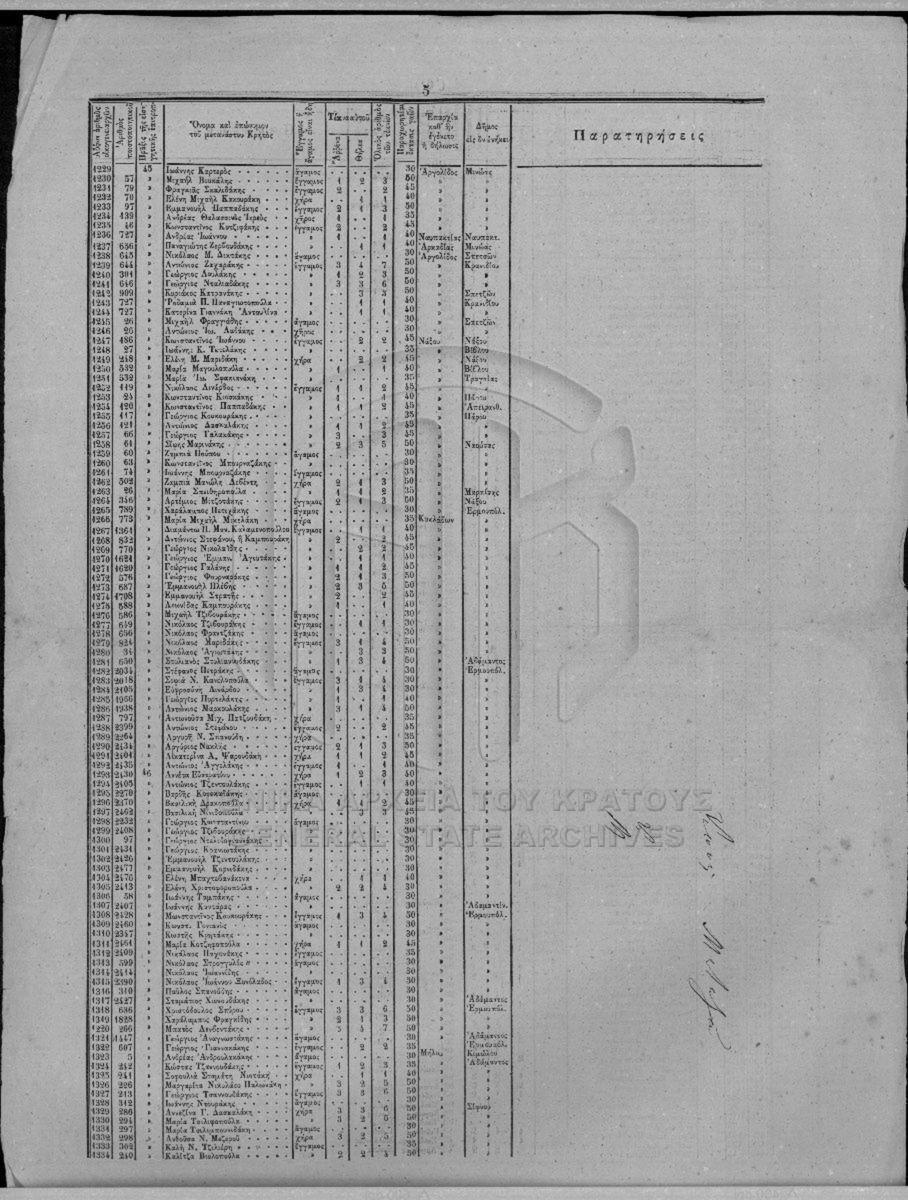 5
Αὔξων ἀριθμὸς οἰκογενειαρχῶν
Ἀριθμὸς πιστοποιητικοῦ
Ὄνομα καὶ ἐπώνυμον τοῦ μετανάστου Κρητὸς
Ἔγγαμος ἢ ἄγαμος εἶναι ἤδη
Τέκνα αὐτοῦ
Ἄρρενα
Θήλεα
Ὁλικὸς ἀριθμὸς τῶν τέκνων
Ἐπαρχία καθ' ἣν ἐγένετο ἡ δήλωσις
Δῆμος εἰς ὃν ἀνήκει
Παρατηρήσεις
1229 45 Ἰωάννης Καρτερὸς ἄγαμος 30 Ἀργολίδος Μινώας
1230 57 » Μιχαὴλ Βουκάλης ἔγγαμος 1 2 3 50 » »
1231 79 » Φραγκιὰς Σκαλιδάκης ἔγγαμος 2 2 45 » »
1232 70 » Ἑλένη Μιχαὴλ Κακουράκη χήρα 1 1 40 » »
1233 97 » Ἐμμανουὴλ Παππαδάκης ἔγγαμος 2 1 3 50 » »
1234 439 » Ἀνδρέας Θαλασσινὸς Ἱερεὺς χῆρος 1 1 35 » »
1235 46 » Κωνσταντῖνος Κυτζιφάκης ἔγγαμος 2 2 45 » »
1236 727 » Ἀνδρέας Ἰωάννου » 1 1 40 Ναυπακτίας Ναυπακτ.
1237 656 » Παναγιώτης Ζερβουδάκης » 1 1 40 Ἀρκαδίας Μινώας
1238 645 » Νικόλαος Μ. Δικτάκης ἄγαμος 30 Ἀργολίδος Σπετσῶν
1239 644 » Ἀντώνιος Ζαχαράκης ἔγγαμος 3 4 7 50 » Κρανιδίου
1240 301 » Γεώργιος Λουλάκης » 1 2 3 50 » »
1241 646 » Γεώργιος Νταλιαδάκης » 3 3 6 50 » »
1242 909 » Κυριάκος Κατρανάκης » 3 3 50 » Σπετζῶν
1243 727 » Ῥοδαμιὰ Π. Παναγιωτοπούλα » 1 1 40 » Κρανιδίου
1244 727 » Κατερίνα Γιαννάκη » 1 1 40 » »
1245 26 » Μιχαὴλ Φραγγιάδης ἄγαμος 30 » Σπετζῶν
1246 26 » Ἀντώνιος Ἰω. χῆρος 30 » »
1247 486 » Κωνσταντῖνος Ἰωάννου ἔγγαμος 2 2 45 Νάξου Νάξου
1248 27 » Ἰωάννης Κ. » 35 » Βίβλου
1249 248 » Ἑλένη Μ. Μαριδάκη χήρα 2 2 45 » Νάξου
1250 532 » Μαρία Μαγουλοπούλα » 1 1 40 » Βίβλου
1251 532 » Μαρία Ἰω. Σφακιανάκη » 35 » Τραγαίας
1252 419 » Νικόλαος Λινάρδος ἔγγαμος 1 1 2 45 » »
1253 24 » Κωνσταντῖνος Κιοσκάκης » 1 1 40 » Πάρου
1254 420 » Κωνσταντῖνος Παππαδάκης » 1 1 2 45 » Ἀπειρανθ.
1255 417 » Γεώργιος Κουκουράκης » 35 » Πάρου
1256 421 » Ἀντώνιος Δασκαλάκης » 1 1 2 45 » »
1257 66 » Γεώργιος Γαλακάκης » 3 3 45 » »
1258 61 » Σίφης Μαρινάκης » 2 3 5 50 » Ναούσας
1259 60 » Ζαμπιὰ Πούπου ἄγαμος 30 » »
1260 63 » Κωνσταντῖνος Μπουρναζάκης » 30 » »
1261 74 » Ἰωάννης Μπουρναζάκης ἔγγαμος 35 » »
1262 502 » Ζαμπιὰ Μανώλη Λεβέντη χήρα 2 1 3 50 » »
1263 26 » Μαρία Σπιθηροπούλα » 1 1 2 35 » Μαρπίσης
1264 346 » Ἀρτέμιος Μιτζοτάκης ἔγγαμος 2 1 3 50 » Νάξου
1265 789 » Χαράλαμπος Πετιχάκης ἄγαμος 30 » Ἑρμουπόλ.
1266 773 » Μαρία Μιχαὴλ Μικελάκη χήρα 35 Κυκλάδων »
1267 1364 » Διαμάντω Π. Μαν. Καλαμενοπούλου ἔγγαμος 1 1 40 » »
1268 832 » Ἀντώνιος Στεφάνου, ἢ Καμπουράκη » 2 2 45 » »
1269 770 » Γεώργιος Νικολαΐδης » 2 2 45 » »
1270 1621 » Γεώργιος Ἐμμαν. Ἁγιωτάκης » 1 1 40 » »
1271 1620 » Γεώργιος Γαλάνης » 1 1 2 45 » »
1272 576 » Γεώργιος Φουρναράκης » 2 1 3 50 » »
1273 687 » Ἐμμανουὴλ Πλέβης » 2 3 5 50 » »
1274 1708 » Ἐμμανουὴλ Στρατῆς » 2 2 45 » »
1275 588 » Λεωνίδας Καμπουράκης » 1 1 40 » »
1276 586 » Μιχαὴλ Τζιβουράκης ἄγαμος 30 » »
1277 649 » Νικόλαος Τζιβουράκης ἔγγαμος 1 1 40 » »
1278 656 » Νικόλαος Φραντζάκης ἄγαμος 30 » »
1279 824 » Νικόλαος Μαριδάκης ἔγγαμος 3 1 4 50 » »
1280 34 » Νικόλαος Ἁγιωτάκης » 3 3 50 » »
1281 650 » Στυλιανὸς Στυλιανουδάκης » 1 3 4 50 » Ἀδάμαντος
1282 2034 » Στέφανος Πετράκης ἄγαμος 30 » Ἑρμουπόλ.
1283 2018 » Σοφιὰ Ν. Κανελοπούλα ἔγγαμος 3 1 4 30 » »
1284 2105 » Εὐφροσύνη Λινάρδου » 1 3 4 30 » »
1285 1966 » Γεώργιος Πυργελάκης » 1 1 40 » »
1286 1938 » Ἀντώνιος Μαρκουλάκης » 3 1 4 50 » »
1287 797 » Ἀντωνοῦσα Μιχ. Πατζουδάκη χήρα 35 » »
1288 2399 » Ἀντώνιος Στεφάνου ἔγγαμος 2 2 45 » »
1289 2264 » Ἀργυρῆ Ν. Σπανούδη χήρα 35 » »
1290 2434 » Ἀργύριος Νακλῆς ἔγγαμος 2 1 3 50 » »
1291 2404 » Αἰκατερίνα Α. Ψαρουδάκη χήρα 1 1 2 45 » »
1292 2435 » Ἀντώνιος Ἀγγελάκης ἔγγαμος 1 1 40 » »
1293 2430 46 Ἀννέτα Εὐστρατίου χήρα 1 2 3 40 » »
1294 2405 » Ἀντώνιος Τζεντουλάκης ἔγγαμος 1 1 40 » »
1295 2270 » Βαρθῆς Κυριακιδάκης ἄγαμος 30 » »
1296 2370 » Βασιλικὴ Δρακοπούλα χήρα 1 1 2 45 » »
1297 2462 » Βασιλικὴ Νινιθοπούλα » 3 3 45 » »
1298 2232 » Γεώργιος Κωνσταντίνου ἄγαμος 30 » »
1299 2408 » Γεώργιος Τζιβουράκης » 30 » »
1300 97 » Γεώργιος » 30 » »
1301 2434 » Γεώργιος Κρανιωτάκης » 30 » »
1302 2426 » Ἐμμανουὴλ Τζεντουλάκης » 30 » »
1303 2477 » Ἐμμανουὴλ Κορνιδάκης » 30 » »
1304 2476 » Ἑλένη Μπαχτεβανάκενα χήρα 1 1 40 » »
1305 2413 » Ἑλένη Χριστοφοροπούλα » 2 2 4 30 » »
1306 58 » Ἰωάννης Ταμπάκης ἄγαμος 30 » »
1307 2407 » Ἰωάννης Καντάρας » 30 » Ἀδαμαντίν.
1308 2428 » Κωνσταντῖνος Κουκουράκης ἔγγαμος 1 3 4 50 » Ἑρμουπόλ.
1309 2460 » Κωνστ. Γονιανὸς ἄγαμος 30 » »
1310 2347 » Κωστῆς Κρητάκης » 30 » »
1311 2461 » Μαρία Κοτζηφοπούλα χήρα 1 1 2 45 » »
1312 2409 » Νικόλαος Παχουνάκης ἔγγαμος 35 » »
1313 599 » Νικόλαος Στρογγυλὸς ἄγαμος 30 » »
1314 2414 » Νικόλαος Ἰωαννίδης » 30 » »
1315 2390 » Νικόλαος Ἰωάννου Ξυνόλαδος ἔγγαμος 1 3 4 30 » »
1316 310 » Παῦλος Σπανούδης ἄγαμος 30 » »
1317 2427 » Σταμάτιος Χιωνουδάκης » 30 » Ἀδάμαντος
1318 636 » Χριστόδουλος Σπύρου ἔγγαμος 3 3 6 50 » Ἑρμουπόλ.
1319 1828 » Χαράλαμπος Φραγκίδης » 2 1 3 50 » »
1220 266 » Μπατὸς Λενδεντάκης » 3 4 7 50 » »
1321 1447 » Γεώργιος Ἀναγνωστάκης ἄγαμος 30 » Ἀδάμαντος
1322 607 » Γεώργιος Γιαννακάκης ἔγγαμος 2 2 35 » Ἑρμουπόλ.
1323 5 » Ἀνδρέας Ἀνδρουλακάκης ἄγαμος 30 Μήλου Κιμώλου
1324 242 » Κώστας Τζανουδάκης ἔγγαμος 1 2 3 35 » Ἀδάμαντος
1325 241 » Σοφουλιὰ Σταμάτη Νιωτάκη χήρα 1 1 40 » »
1326 226 » Μαργαρίτα Νικολάου Παλιωνάκη » 3 2 5 50 » »
1327 213 » Γεώργιος Τσαννουδάκης ἔγγαμος 3 3 6 50 » »
1328 312 » Ἰωάννης Ντουράκης ἄγαμος 30 » »
1329 286 » Ἀννεζίνα Γ. Δασκαλάκη χήρα 3 3 6 50 » Σίφνου
1330 294 » Μαρία Τσιλιφοπούλα » 3 2 5 50 » »
1331 297 » Μαρία Τσιλιμπουνιδάκη ἄγαμος 30 » »
1332 298 » Ἀνθοῦσα Ν. Μαζεροῦ χήρα 3 2 5 50 » »
1333 302 » Καλὴ Ν. Τζιλιέρη ἔγγαμος 35 » »
1334 240 » Καλίτζα Βιολοπούλα » 2 2 4 50 » »
ΑΡΧΕΙΑ ΤΟΥ ΚΡΑΤΟΥΣ
GENERAL STATE ARCHIVES